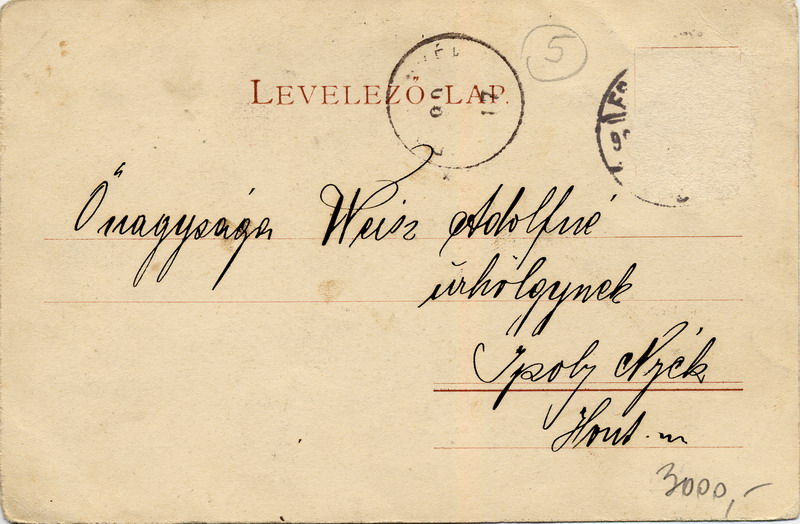 5
LEVELEZŐ-LAP.
Őnagysága Weisz Adolfné
úrhölgynek
Ipoly Nyék
Hont-m
3000,-